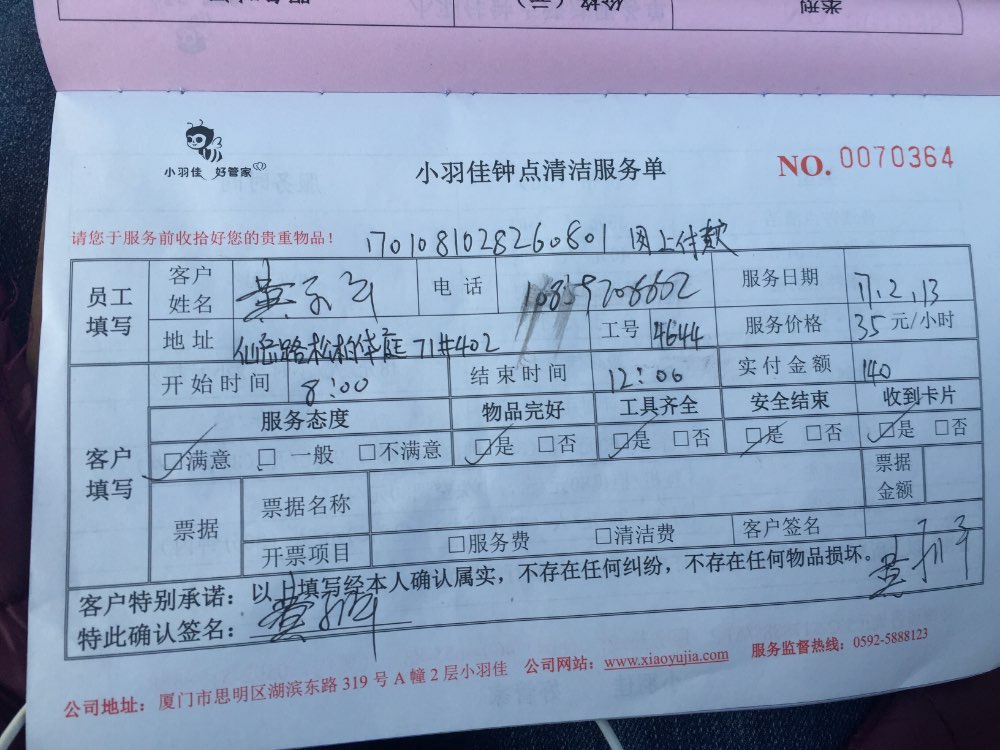 类型
价格（元）
小羽佳 好管家
小羽佳钟点清洁服务单
NO. 0070364
请您于服务前收拾好您的贵重物品！
1701081028260801 网上付款
员工填写 客户姓名 黄 电话 服务日期 17.2.13
地址 仙岳路松柏华庭71#402 工号 4644 服务价格 35 元/小时
客户填写 开始时间 8:00 结束时间 12:00 实付金额 140
服务态度 物品完好 工具齐全 安全结束 收到卡片
☑满意 □ 一般 □不满意 ☑是 □否 ☑是 □否 ☑是 □否 ☑是 □否
票据 票据名称 票据金额
开票项目 □服务费 □清洁费 客户签名
客户特别承诺：以上填写经本人确认属实，不存在任何纠纷，不存在任何物品损坏。
特此确认签名：
公司地址：厦门市思明区湖滨东路 319 号 A 幢 2 层小羽佳 公司网站：www.xiaoyujia.com 服务监督热线：0592-5888123